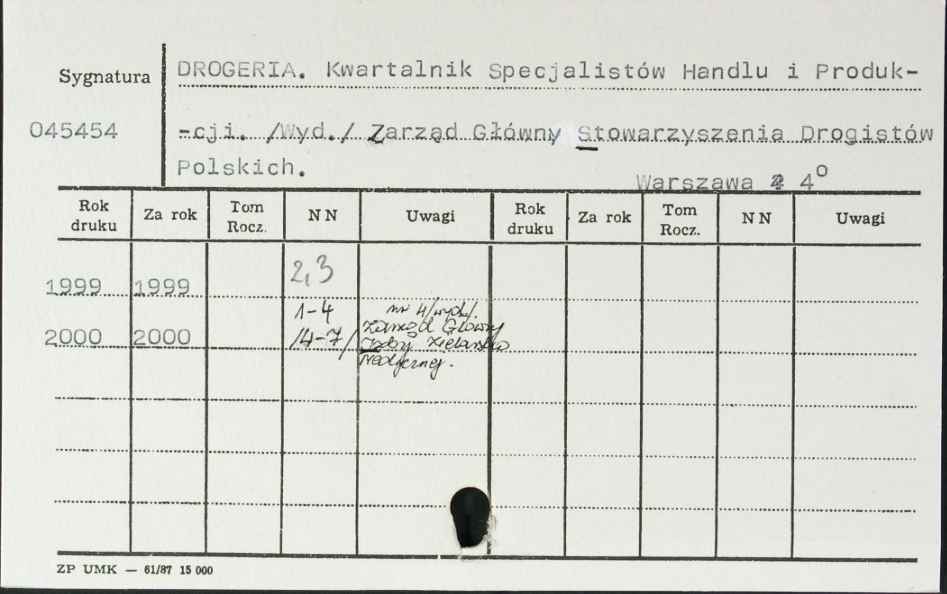 DROGERIA. Kwartalnik Specjalistów Handlu i Produk-
Sygnatura
045454 -cji. /Wyd./ Zarząd Główny Stowarzyszenia Drogistów
Polskich.
Warszawa 4°
Rok druku Za rok Tom Rocz. NN Uwagi Rok druku Za rok Tom Rocz. NN Uwagi
1999 1999 2,3
1-4 nr 4/wyd/.
2000 2000 /4-7/ Zarząd Główny
Izby Zielarsko
Medycznej.
ZP UMK — 61/87 15 000